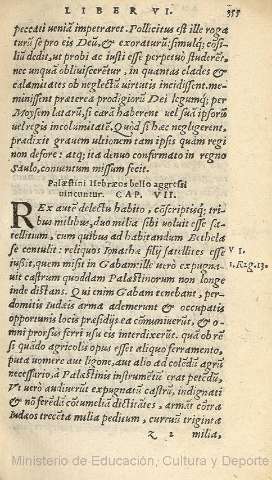 LIBER VI. 355
peccati veniã impetraret. Pollicitus est ille roga
turũ se pro eis Deũ, & exoraturũ: simulq́; cõsi=
liũ dedit, ut probi ac iusti esse perpetuò studerẽt,
nec unquã obliviscerẽtur, in quantas clades &
calamitates ob neglectũ virtutis incidissent: me=
minissent præterea prodigiorũ Dei legumq́; per
Moysem latarũ, si cará haberent vel suá ipsorũ
uel regis incolumitatẽ. Quòd si hæc negligerent,
prædixit grauem ultionem tam ipsis quàm regi
non defore: atq; ita denuo confirmato in regno
Saulo, conuentum missum fecit.
Palæstini Hebræos bello aggressi
uincuntur. CAP. VII.
REx autẽ delectu habito, cõscriptisq́; tri=
bus milibus, duo milia sibi uoluit esse sa=
tellitum, cum quibus ad habitandum Bethela
se contulit: reliquos Ionathæ filij satellites esse
VI.
iußit, quem misit in Gaba: ille verò expugna=
1. Reg. 13.
uit castrum quoddam Palæstinorum non longe
inde distant. Qui enim Gabam tenebant, per=
domitis Iudæis arma ademerunt & occupatis
opportunis locis præsidijs ea cõmunièrũt, & o=
mni prorsus ferri usu eis interdixerũt. quá ob rẽ
si quãdo agricolis opus esset aliquo ferramento,
puta uomere aut ligone, aut alio ad colẽdũ agrũ
necessario, á Palæstinis instrumẽtũ erat petẽdũ.
Vt verò audiuerũt expugnatũ castrũ, indignati
& nõ ferẽdã cõtumeliã dictitãtes, armãt cõtra
Iudæos trecẽta milia peditum, currus triginta
Z 2 milia,
Ministerio de Educación, Cultura y Deporte